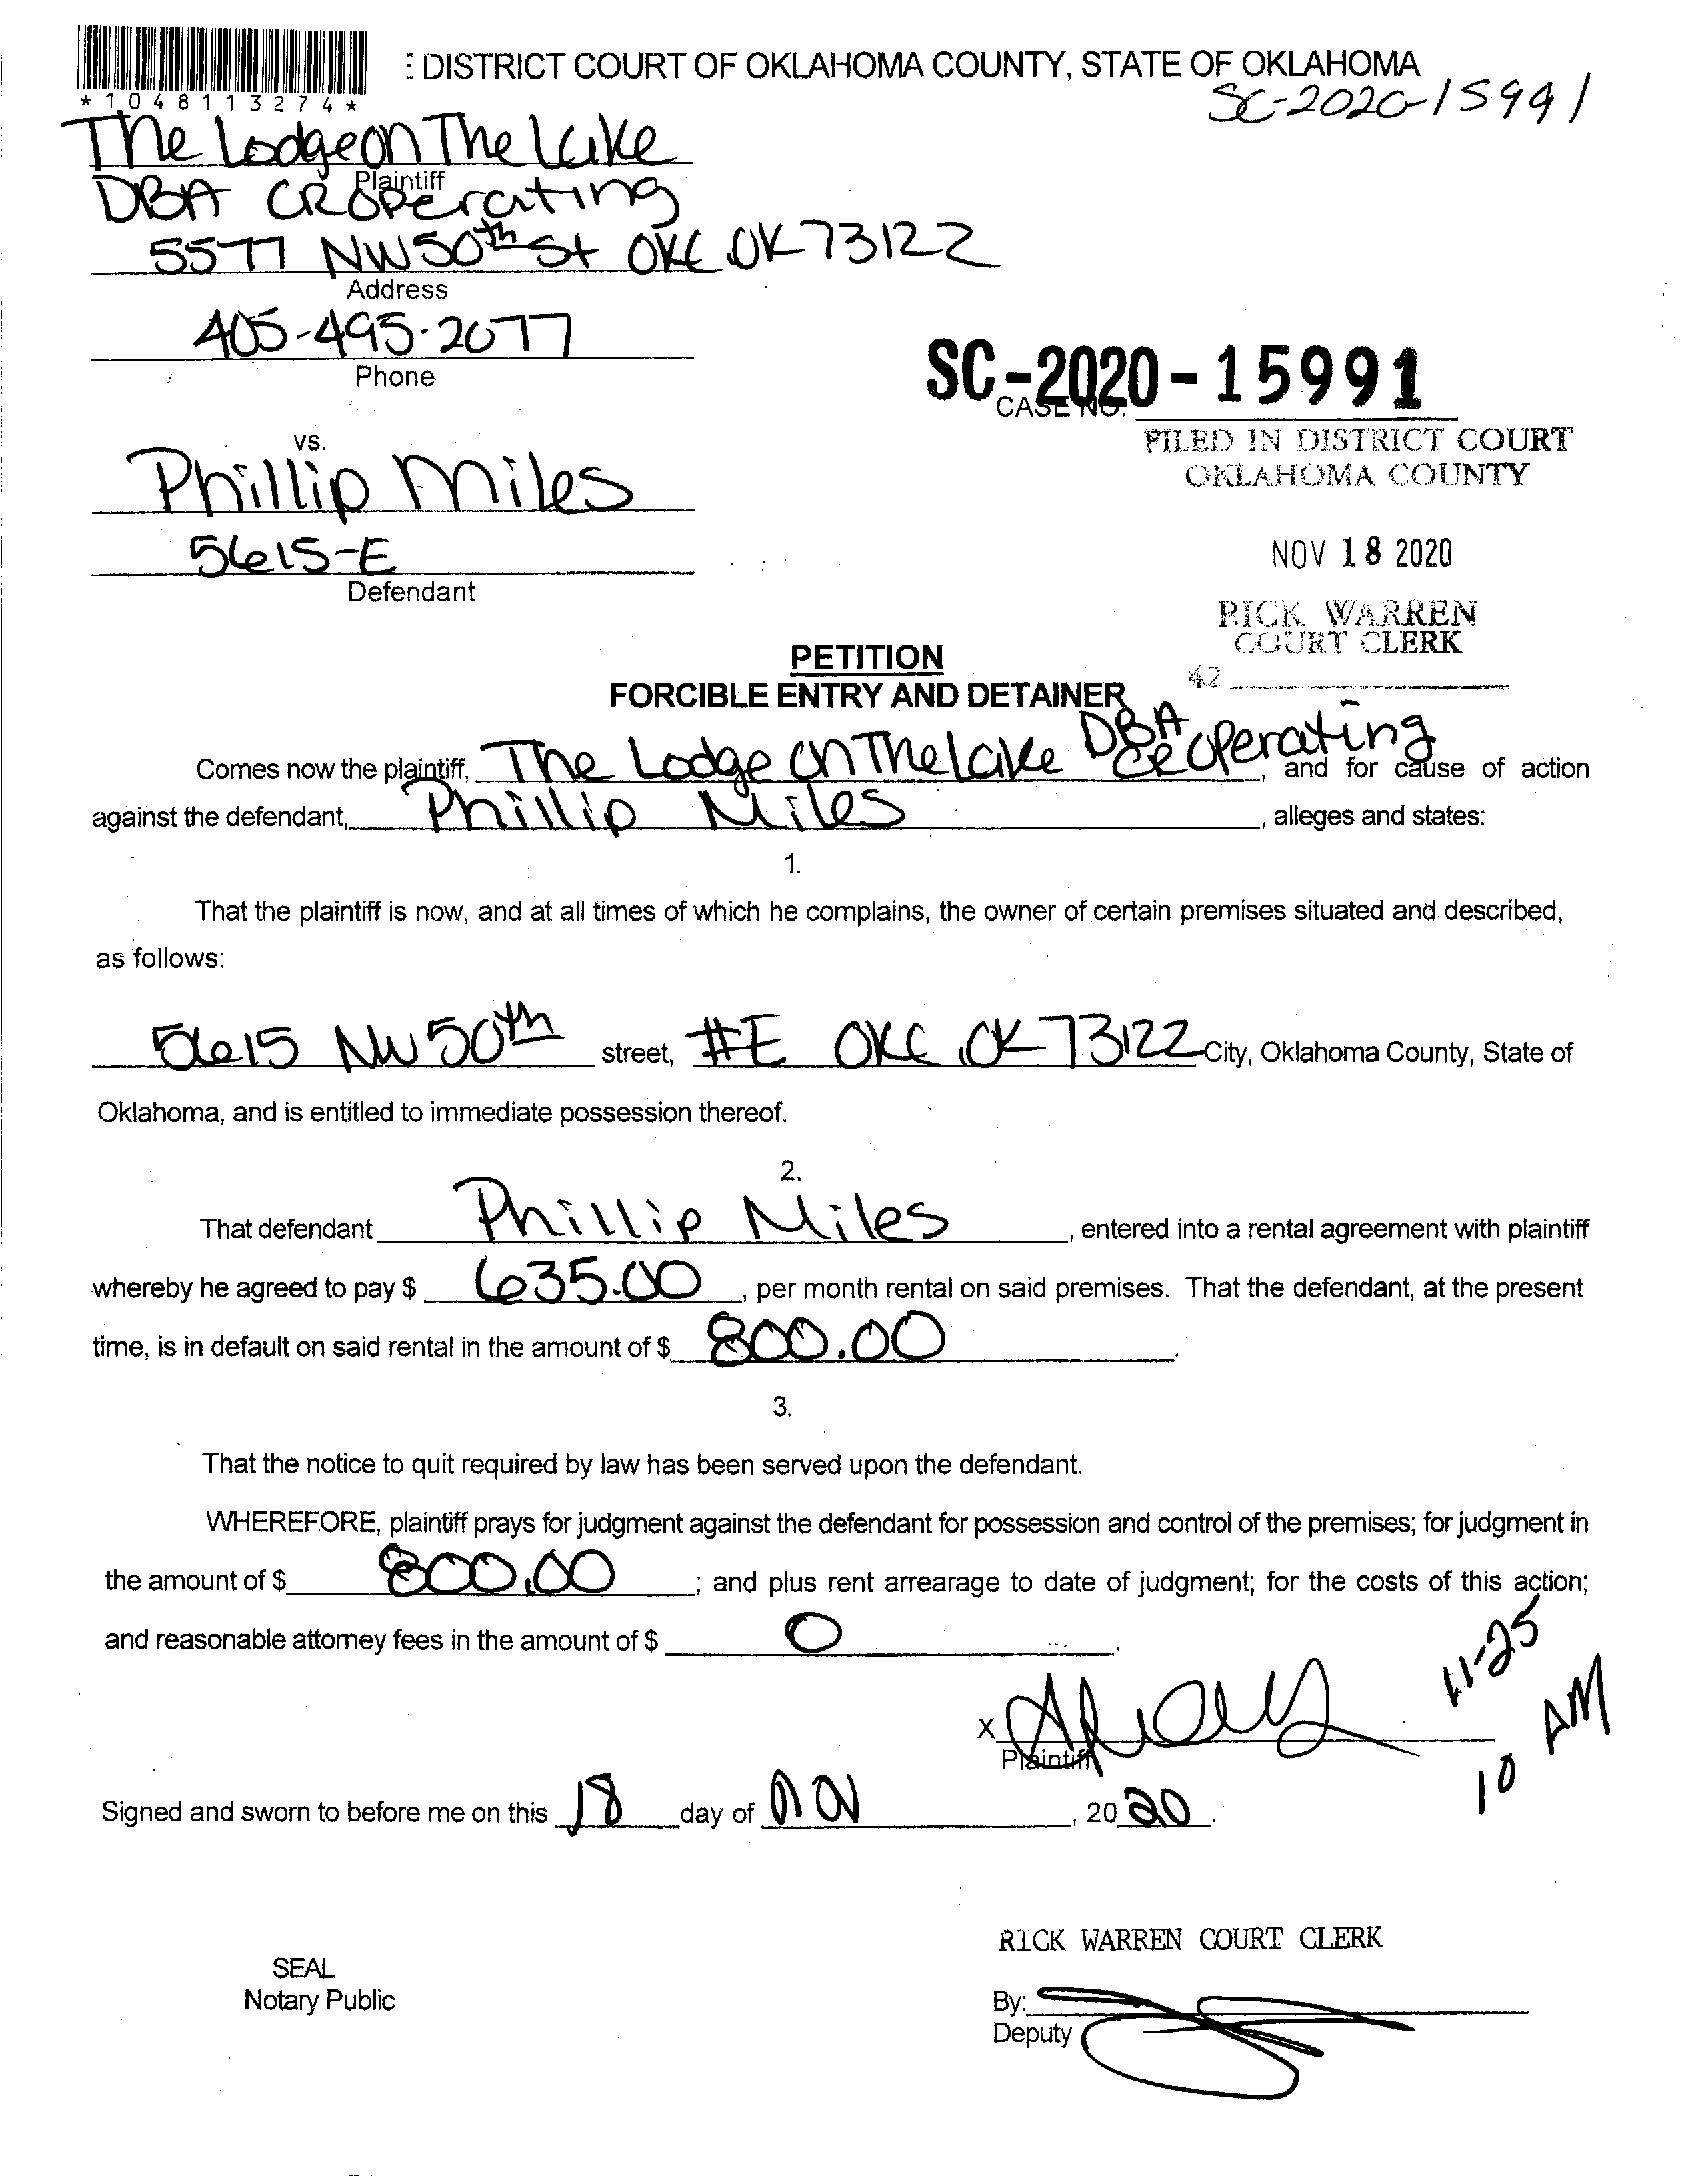 : DISTRICT COURT OF OKLAHOMA COUNTY, STATE OF OKLAHOMA
* 1 0 4 8 1 1 3 2 7 4 *
SC-2020-15991
The Lodge on The Lake
Plaintiff
DBA CR Operating
5577 NW 50th St OKC OK 73122
Address
405-495-2077
Phone
SC-2020-15991
CASE NO.
FILED IN DISTRICT COURT
OKLAHOMA COUNTY
vs.
Phillip Miles
5615-E
Defendant
NOV 18 2020
RICK WARREN
COURT CLERK
42
PETITION
FORCIBLE ENTRY AND DETAINER
Comes now the plaintiff, The Lodge on The Lake DBA CR Operating, and for cause of action
against the defendant, Phillip Miles, alleges and states:
1.
That the plaintiff is now, and at all times of which he complains, the owner of certain premises situated and described,
as follows:
5615 NW 50th street, #E OKC OK 73122 City, Oklahoma County, State of
Oklahoma, and is entitled to immediate possession thereof.
2.
That defendant Phillip Miles, entered into a rental agreement with plaintiff
whereby he agreed to pay $ 635.00, per month rental on said premises. That the defendant, at the present
time, is in default on said rental in the amount of $ 800.00.
3.
That the notice to quit required by law has been served upon the defendant.
WHEREFORE, plaintiff prays for judgment against the defendant for possession and control of the premises; for judgment in
the amount of $ 800.00; and plus rent arrearage to date of judgment; for the costs of this action;
and reasonable attorney fees in the amount of $ 0.
11-25
10 AM
X
Plaintiff
Signed and sworn to before me on this 18 day of NOV, 2020.
RICK WARREN COURT CLERK
SEAL
Notary Public
By:
Deputy